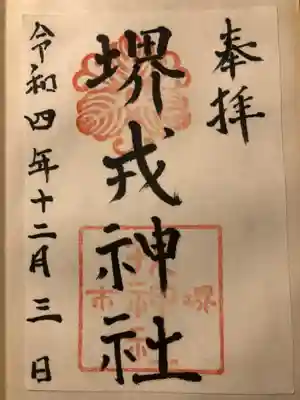 奉拝
堺戎神社
令和四年十二月三日